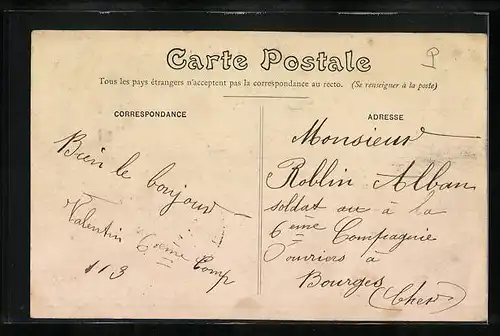 Carte Postale
Tous les pays étrangers n'acceptent pas la correspondance au recto. (Se renseigner à la poste)
CORRESPONDANCE
Bien le bonjour
Valentin
6eme Comp
113
ADRESSE
Monsieur
Roblin Alban
soldat au à la
6eme Compagnie
Ouvriers à
Bourges
(Cher)